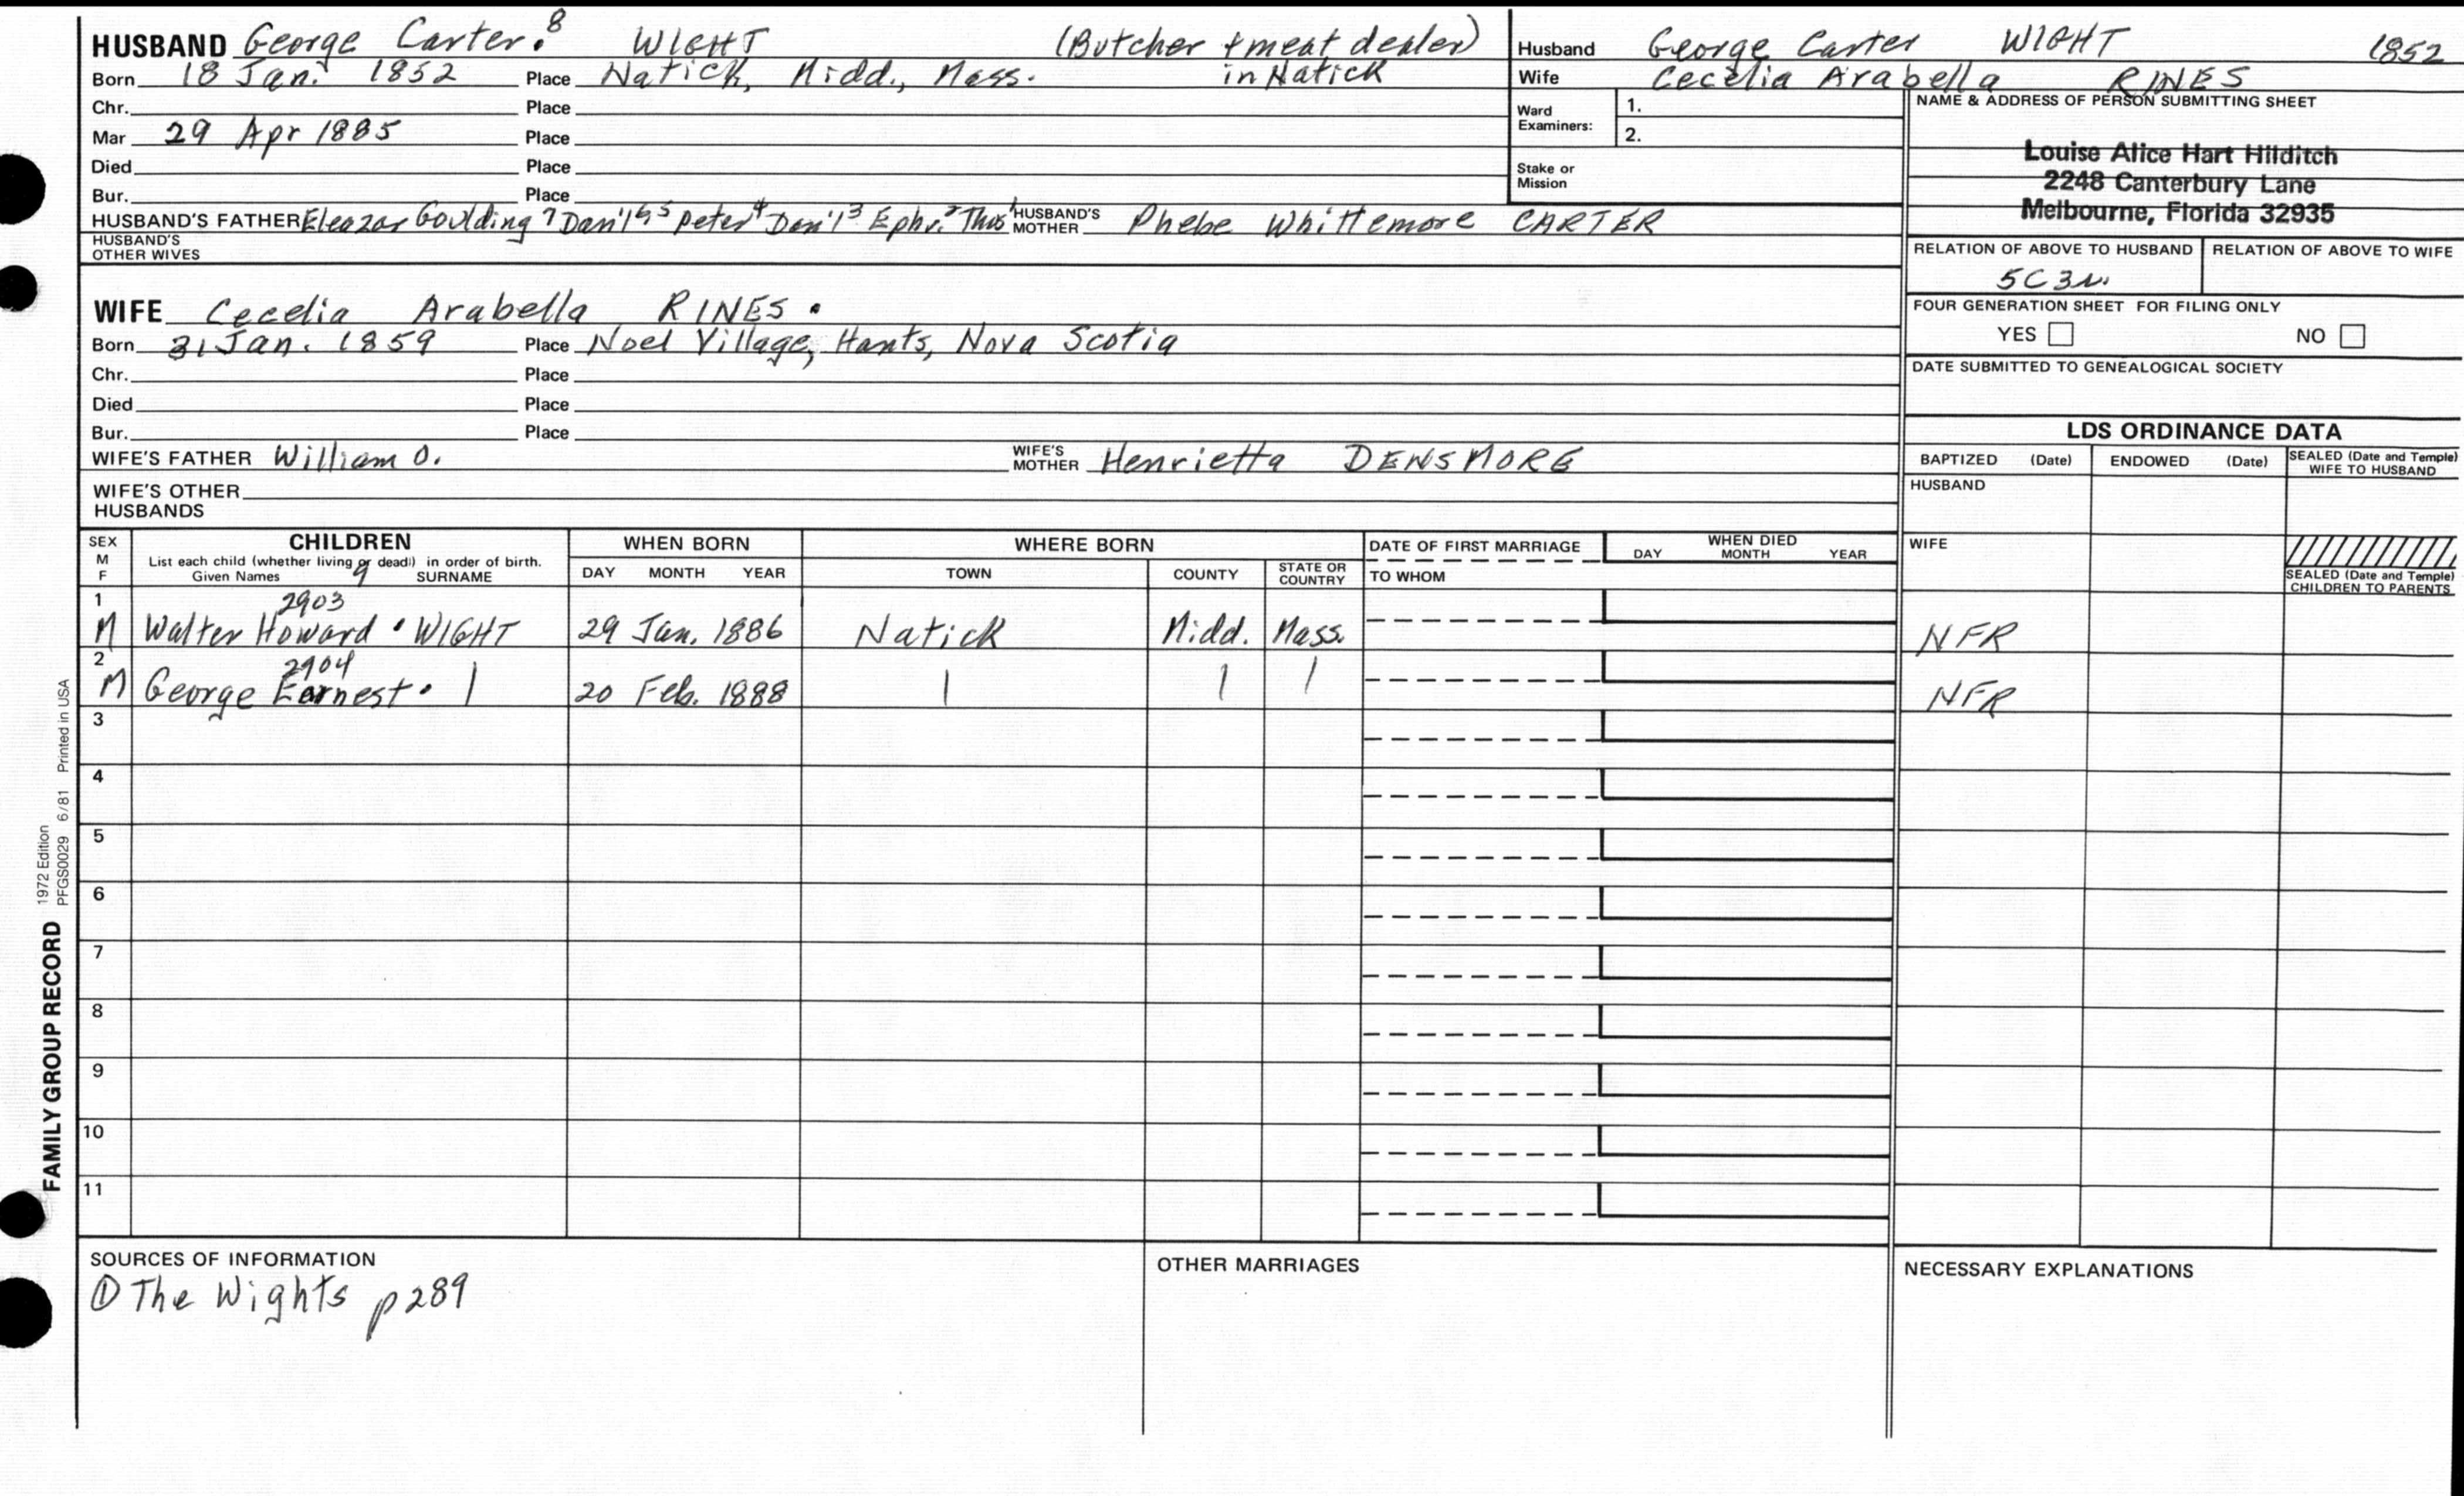 HUSBAND George Carter.8 WIGHT (Butcher + meat dealer)
Born 18 Jan. 1852 Place Natick, Midd., Mass. in Natick
Chr. Place
Mar 29 Apr 1885 Place
Died Place
Bur. Place
HUSBAND'S FATHER Eleazar Goulding 7 Dan'l 6 5 Peter 4 Dan'l 3 Eph. 2 Thos 1 HUSBAND'S MOTHER Phebe Whittemore CARTER
HUSBAND'S OTHER WIVES
WIFE Cecelia Arabella RINES .
Born 31 Jan. 1859 Place Noel Village, Hants, Nova Scotia
Chr. Place
Died Place
Bur. Place
WIFE'S FATHER William O. WIFE'S MOTHER Henrietta DENSMORE
WIFE'S OTHER HUSBANDS
Husband George Carter WIGHT 1852
Wife Cecelia Arabella RINES
Ward Examiners: 1.
2.
Stake or Mission
NAME & ADDRESS OF PERSON SUBMITTING SHEET
Louise Alice Hart Hilditch
2248 Canterbury Lane
Melbourne, Florida 32935
RELATION OF ABOVE TO HUSBAND RELATION OF ABOVE TO WIFE
5C3r.
FOUR GENERATION SHEET FOR FILING ONLY
YES NO
DATE SUBMITTED TO GENEALOGICAL SOCIETY
LDS ORDINANCE DATA
BAPTIZED (Date) ENDOWED (Date) SEALED (Date and Temple) WIFE TO HUSBAND
HUSBAND
WIFE
SEALED (Date and Temple) CHILDREN TO PARENTS
SEX M F CHILDREN WHEN BORN WHERE BORN DATE OF FIRST MARRIAGE WHEN DIED
List each child (whether living or dead) in order of birth. DAY MONTH YEAR
Given Names 9 SURNAME DAY MONTH YEAR TOWN COUNTY STATE OR COUNTRY TO WHOM
1 2903
M Walter Howard . WIGHT 29 Jan. 1886 Natick Midd. Mass. NFR
2 2904
M George Earnest . | 20 Feb. 1888 | | | NFR
3
4
5
6
7
8
9
10
11
SOURCES OF INFORMATION OTHER MARRIAGES NECESSARY EXPLANATIONS
① The Wights p289
FAMILY GROUP RECORD 1972 Edition
PFGS0029 6/81 Printed in USA